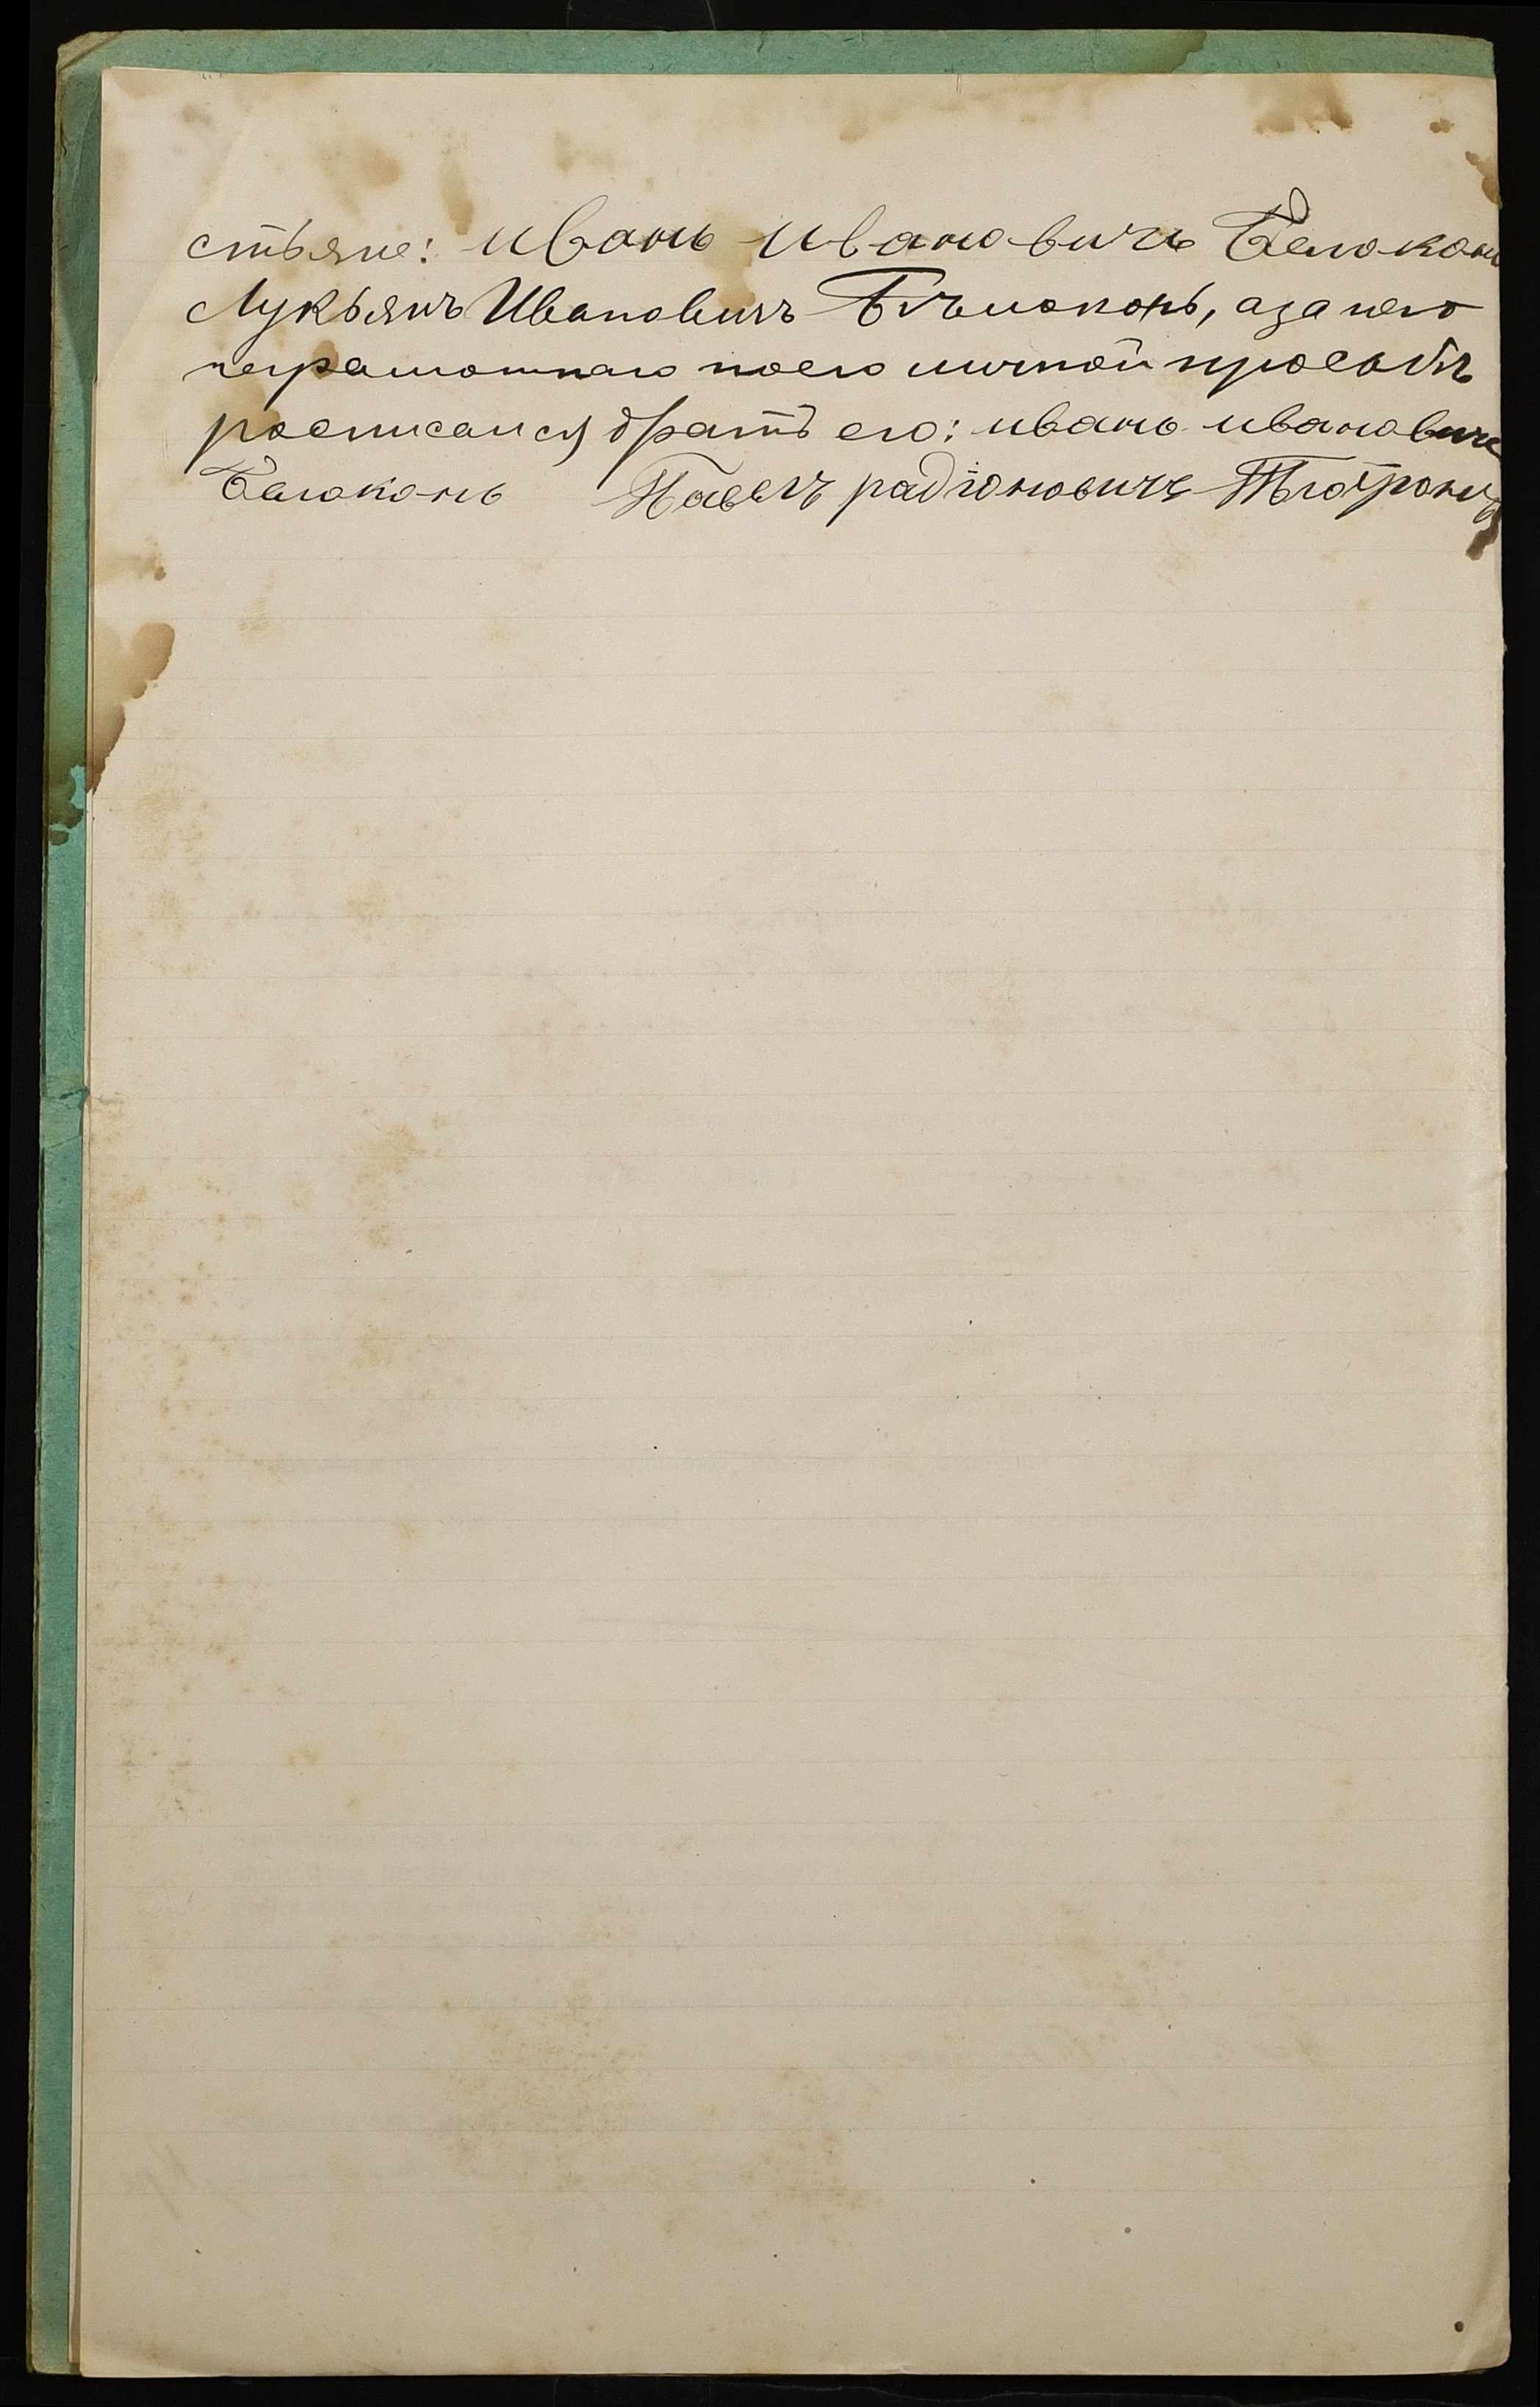 стьяне: иванъ ивановичь Белоконь
Лукьянъ Ивановичъ Бѣлоконь, а за него
неграмотнаго по его личной просьбѣ
росписался братъ его: иванъ ивановичь
Белоконь Павелъ радіоновичъ